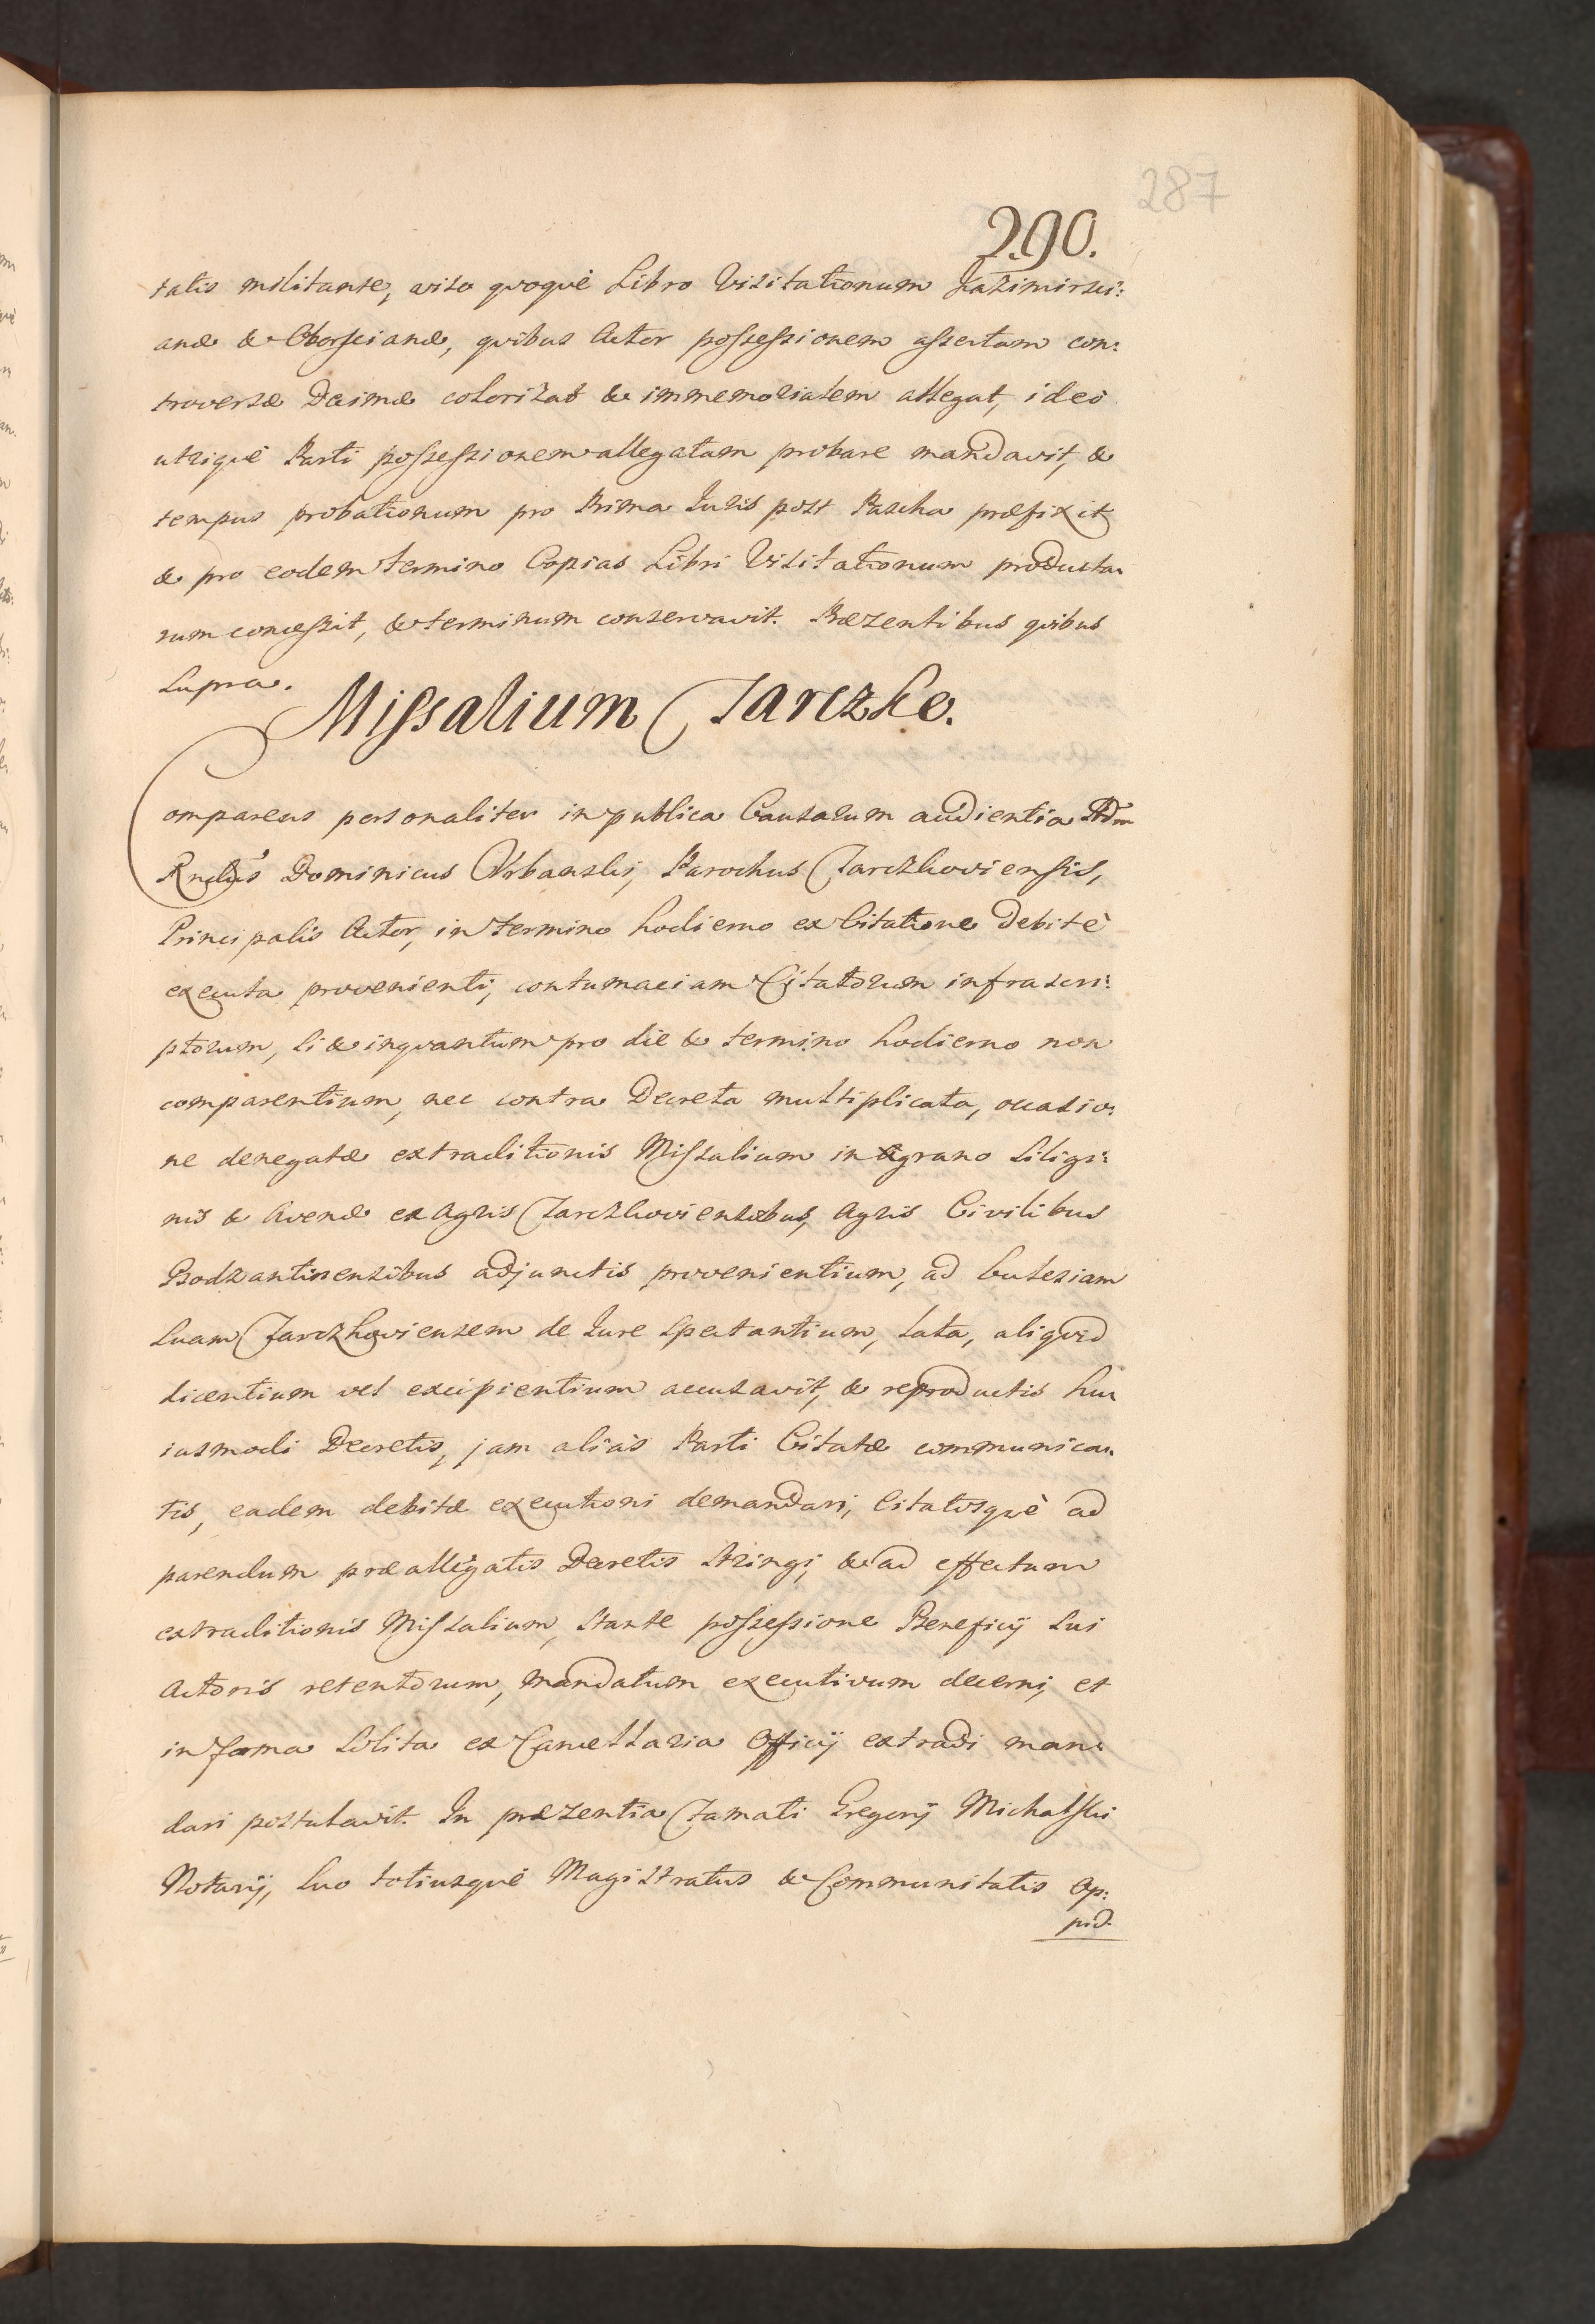 287
290.
talis militante, viso quoque Libro Visitationum Kazimirsci:
anæ & Oborscianæ, quibus Actor possessionem assertam con:
troversæ Decimæ colorizat & immemorialem allegat, ideo
utrique Parti possessionem allegatam probare mandavit, &
tempus probationum pro Prima Juris post Pascha præfixit
& pro eodem termino Copias Libri Visitationum producta:
rum concessit, & terminum conservavit. Præsentibus quibus
Supra.
Missalium Tarczke.
Comparens personaliter in publica Causarum audientia Adm
Rndus Dominicus Urbanski, Parochus Tarczkoviensis,
Principalis Actor, in termino hodierno ex Citatione debitè
executa provenienti, contumaciam Citatorum infrascri:
ptorum, si & inquantum pro die & termino hodierno non
comparentium, nec contra Decreta multiplicata, occasio:
ne denegatæ extraditionis Missalium in grano Siligi:
nis & Avenæ ex Agris Tarczkoviensibus, Agris Civilibus
Bodzantinensibus adjunctis provenientium, ad Ecclesiam
Suam Tarczkoviensem de Jure Spectantium, Lata, aliquid
dicentium vel excipientium accusavit, & reproductis hu
iusmodi Decretis, jam aliàs Parti Citatæ communica:
tis, eadem debitæ executioni demandari, Citatosquè ad
parendum præallegatis Decretis Stringi, & ad effectum
extraditionis Missalium, Stante possessione Beneficij Sui
Actoris retentorum, mandatum executivum decerni, et
in forma Solita ex Cancellaria Officij extradi man:
dari postulavit. In præsentia Famati Gregorij Michalski
Notarij, Suo totiusquè Magistratus & Communitatis Op:
pid.